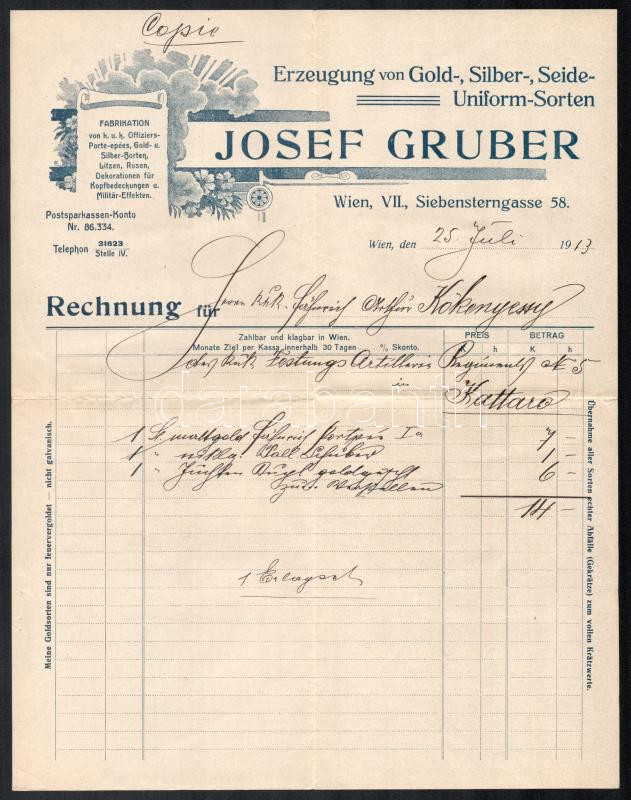 Copie
Erzeugung von Gold-, Silber-, Seide-
Uniform-Sorten
JOSEF GRUBER
FABRIKATION
von k. u. k. Offiziers-
Porte-epées, Gold- u.
Silber-Borten,
Litzen, Rosen,
Dekorationen für
Kopfbedeckungen u.
Militär-Effekten.
Wien, VII., Siebensterngasse 58.
Postsparkassen-Konto
Nr. 86.334.
Telephon 31623
Stelle IV.
Wien, den 25. Juli 1913
Rechnung für Herrn k.u.k. Fähnrich Arthur Kökenyessy
Zahlbar und klagbar in Wien.
Monate Ziel per Kassa innerhalb 30 Tagen % Skonto.
PREIS BETRAG
K h K h
des k.u.k. Festungs Artillerie Regiments No 5
in Kattaro
1 St. mattgold Fähnrich Portpée Ia 7 –
1 " 1 –
1 " Juchten 6 –
zum
14 –
1 Erlagsch
Meine Goldsorten sind nur feuervergoldet — nicht galvanisch.
Übernahme aller Sorten echter Abfälle (Gekrätze) zum vollen Krätzwerte.
darabanth